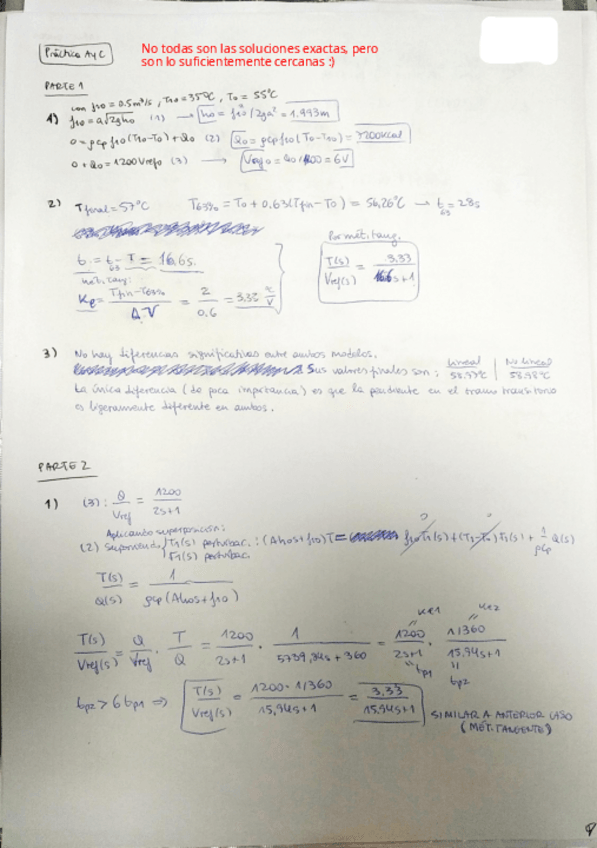 Práctica AyC
No todas son las soluciones exactas, pero
son lo suficientemente cercanas :)
PARTE 1
con f10 = 0.5m³/s, T10 = 35ºC, T0 = 55ºC
1) f10 = a√2gh0 (1) → h0 = f10²/2ga² = 1.993m
0 = ρcp f10(T10-T0)+Q0 (2) Q0 = ρcp f10(T0-T10) = 7200kcal
0 + Q0 = 1200Vref0 (3) → Vref0 = Q0/1200 = 6V
2) Tfinal = 57ºC T63% = T0 + 0.63(Tfin-T0) = 56,26ºC → t63 = 28s
Por mét. tang.
t = t63 - T = 16.6s.
mét. tang:
Ke = Tfin-T63% / ΔV = 2 / 0.6 = 3,33 ºC/V
T(s)/Vref(s) = 3.33 / 16.6s+1
3) No hay diferencias significativas entre ambos modelos.
Sus valores finales son: Lineal 58.99ºC | No lineal 58.98ºC
La única diferencia (de poca importancia) es que la pendiente en el tramo transitorio
es ligeramente diferente en ambos.
PARTE 2
1) (3): Q/Vref = 1200/2s+1
Aplicando superposición:
(2) Suponiendo T1(s) perturbac. : (Ah0s+f10)T = f10T1(s)+(T1-T0)F1(s) + 1/ρcp Q(s)
F1(s) perturbac.
0 0
T(s)/Q(s) = 1 / ρcp(Ah0s+f10)
Ke1 Ke2
T(s)/Vref(s) = Q/Vref · T/Q = 1200/2s+1 · 1/5739,84s+360 = 1200/2s+1 · 1/360 / 15,94s+1
tp1 tp2
tp2 > 6tp1 ⇒ T(s)/Vref(s) = 1200·1/360 / 15,94s+1 = 3,33 / 15,94s+1
SIMILAR A ANTERIOR CASO
(MÉT. TANGENTE)